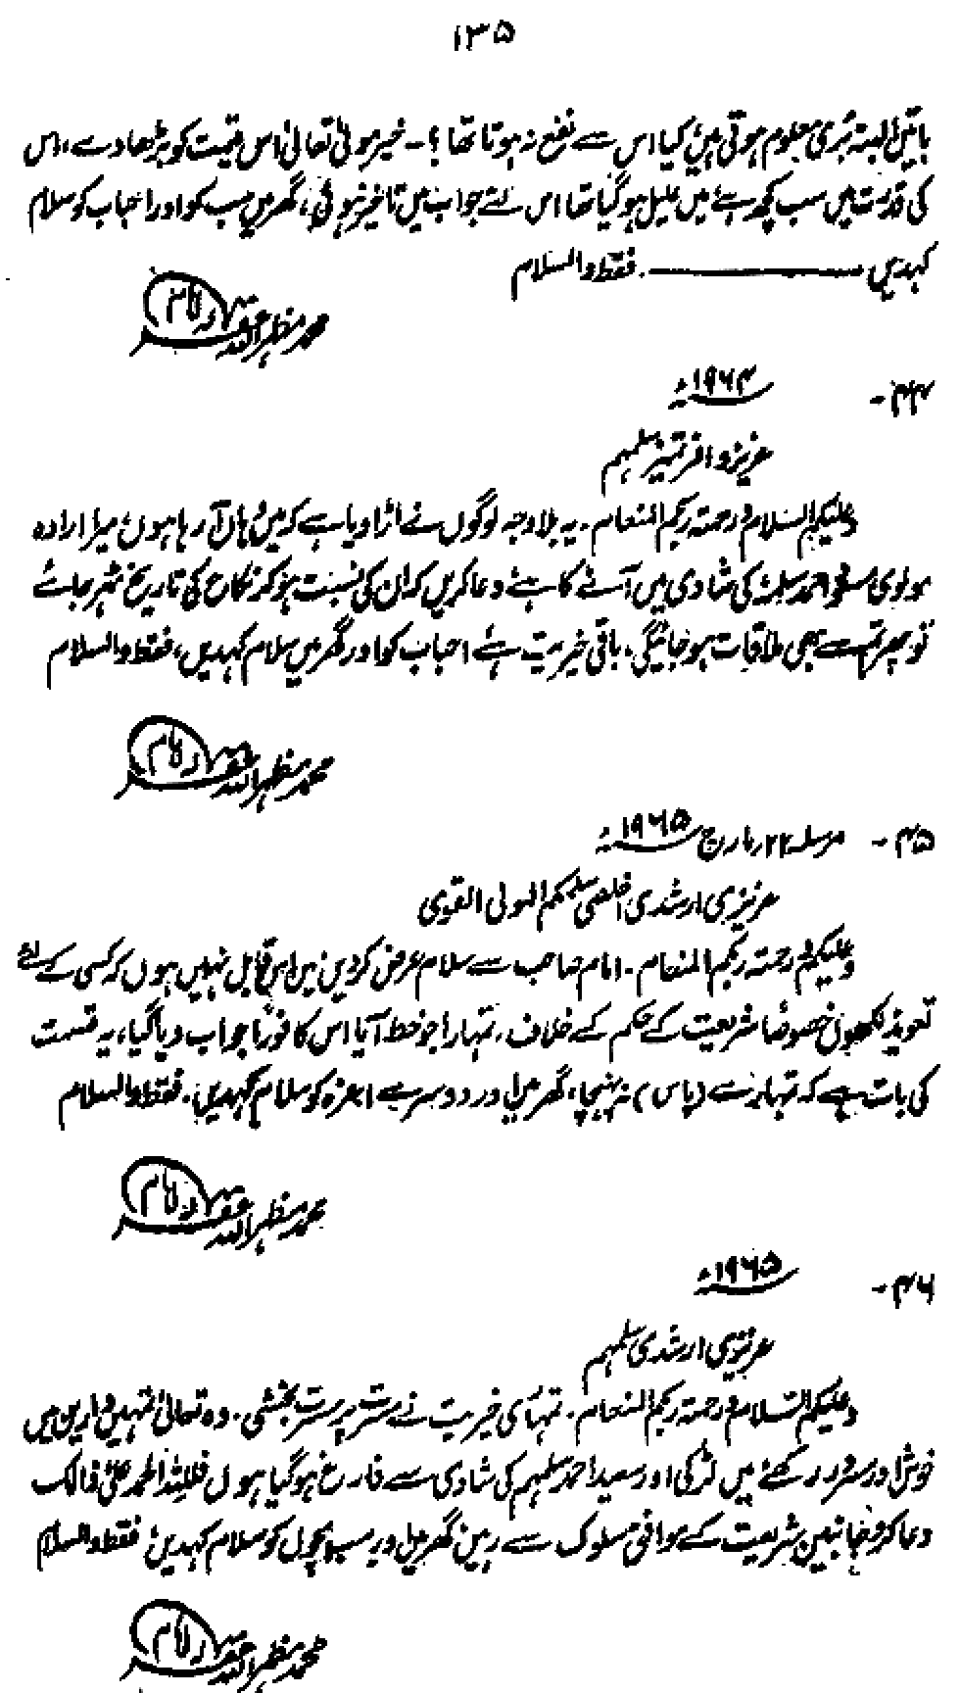 ۱۳۵
باتیں البتہ بُری معلوم ہوتی ہیں، کیا اس سے نفع نہ ہوتا تھا؟ ۔ خیر مولیٰ تعالیٰ اس قیمت کو بڑھا دے، اس
کی قدرت میں سب کچھ ہے، میں علیل ہو گیا تھا اس لئے جواب میں تاخیر ہوئی، گھر میں سب کو اور احباب کو سلام
کہدیں ——— . فقط والسلام
محمد مظہر اللہ غفرلہ
۴۴ - ۱۹۶۴ء
عزیز وافر تمیز سلمہم
وعلیکم السلام ورحمۃ ربکم المنعام ۔ یہ بلاوجہ لوگوں نے اڑا دیا ہے کہ میں وہاں آ رہا ہوں، میرا ارادہ
مولوی احمد سلمہٗ کی شادی میں آنے کا ہے، دعا کریں کہ ان کی نسبت ہو کر نکاح کی تاریخ ٹھہر جائے
تو پھر تم سے بھی ملاقات ہو جائیگی، باقی خیریت ہے، احباب کو اور گھر میں سلام کہدیں، فقط والسلام
محمد مظہر اللہ غفرلہ
۴۵ - مرسلہ ۲۲ر مارچ ۱۹۶۵ء
عزیزی ارشدی اخلصی سلمکم المولی القوی
وعلیکم ورحمۃ ربکم المنعام ۔ امام صاحب سے سلام عرض کردیں میں اس قابل نہیں ہوں کہ کسی کے لئے
تعویذ لکھوں خصوصًا شریعت کے حکم کے خلاف، تمہارا جو خط آیا اس کا فورًا جواب دیا گیا، یہ قسمت
کی بات ہے کہ تمہارے (پاس) نہ پہنچا، گھر میں اور دوسرے اعزہ کو سلام کہدیں، فقط والسلام
محمد مظہر اللہ غفرلہ
۴۶ - ۱۹۶۵ء
عزیزی ارشدی سلمہم
وعلیکم السلام ورحمۃ ربکم المنعام ۔ تمہاری خیریت نے مسرت پر مسرت بخشی ۔ وہ تعالیٰ تمہیں دارین میں
خوش اور مسرور رکھے، میں لڑکی اور سعید احمد سلہم کی شادی سے فارغ ہو گیا ہوں فللہ الحمد علیٰ ذالک
دعا کرو جانبین شریعت کے موافق سلوک سے رہیں، گھر میں اور سب بچوں کو سلام کہدیں، فقط والسلام
محمد مظہر اللہ غفرلہ